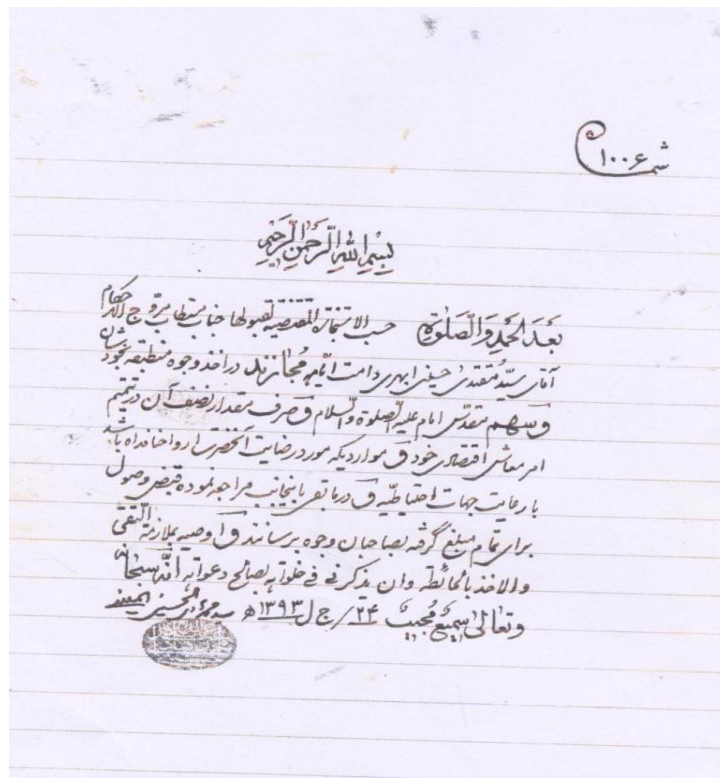 شماره ۱۰۰۶
بِسْمِ اللهِ الرَّحْمنِ الرَّحیمِ
بَعْدَ الحَمْدِ وَالصَّلوةِ حسب الاستجازة المقتضیه لقبولها جناب مستطاب مروّج الاحکام
آقای سیّد مقتدیٰ حسینی ابهری دامت ایّامه مُجازند در اخذ وجوه منطبقه بخودشان
و سهم مقدّس امام علیه الصلوة والسلام و صرف مقدار نصف آن در تتمیم
امر معاش اقتصادی خود و مواردیکه مورد رضایت آنحضرت ارواحنا فداه باشد
با رعایت جهات احتاطیّه و در مابقی باینجانب مراجعه نموده قبض وصول
برای تمام مبلغ گرفته بصاحبان وجوه برسانند و اوصیه بملازمة التقی
والاخذ بالحائطة وان یذکرنی فی خلواته بصالح دعواته انّه سبحانه
وتعالی سمیع مجیب ۲۴/ ج ل ۱۳۹۳ ه‍